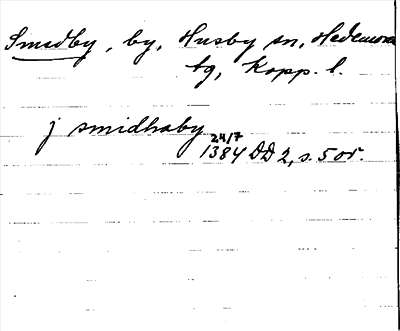 Smedby, by, Husby sn, Hedemora
tg, Kopp. l.
j smidhaby
24/7
1384 DD 2, s. 5 or.